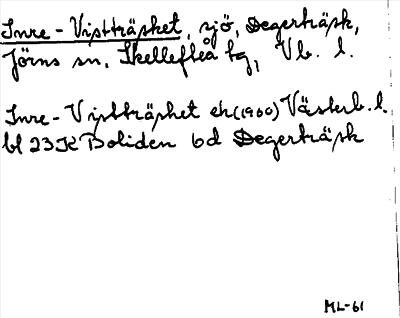 Inre-Vistträsket, sjö, Degerträsk,
Jörns sn, Skellefteå tg, Vb. l.
Inre-Vistträsket ek(1960) Västerb. l.
bl 23K Boliden 6d Degerträsk
ML-61